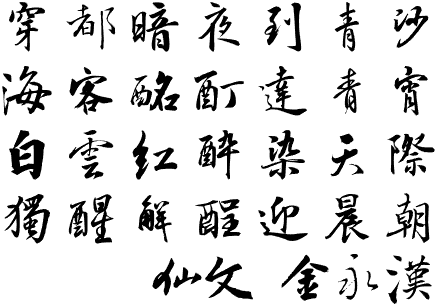 穿都暗夜到青沙
海客酩酊達青宵
白雲紅醉染天際
獨醒解酲迎晨朝
仙文 金永漢